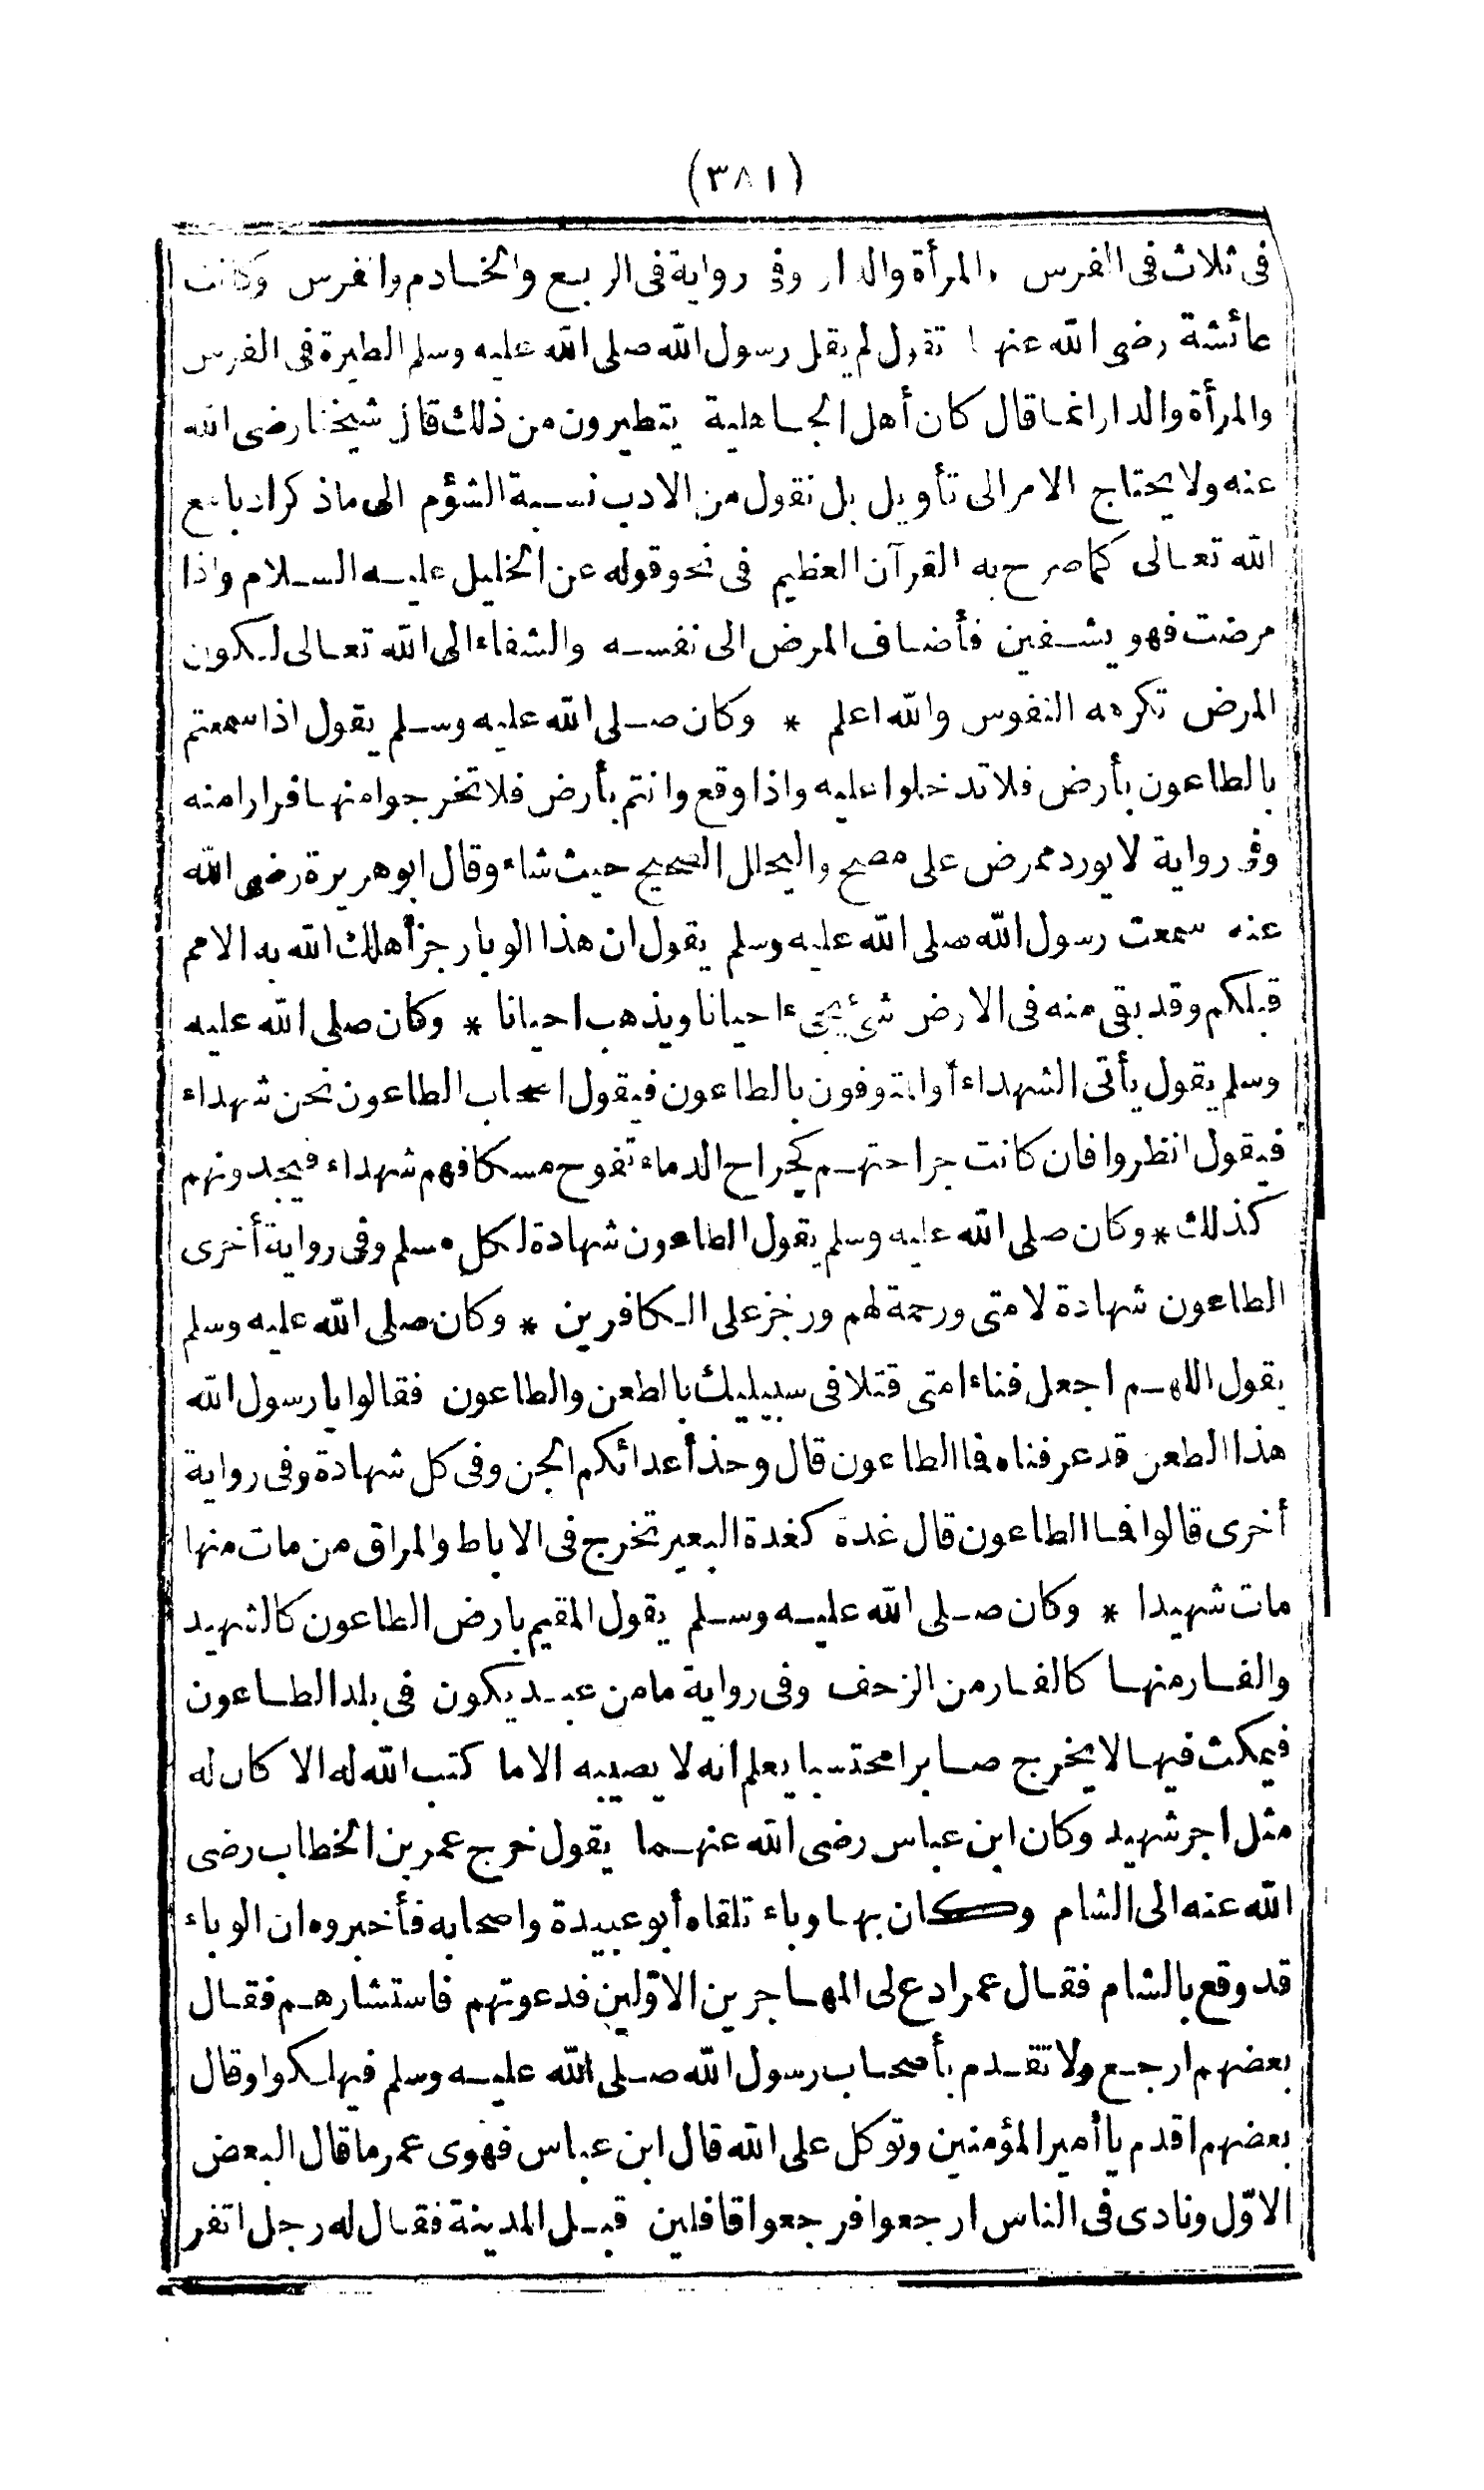 (٣٨١)
فى ثلاث فى الفرس والمرأة والدار وفى رواية فى الربع والخادم والفرس وكانت
عائشة رضى الله عنها تقول لم يقل رسول الله صلى الله عليه وسلم الطيرة فى الفرس
والمرأة والدار انما قال كان أهل الجاهلية يتطيرون من ذلك قال شيخنا رضى الله
عنه ولا يحتاج الامر الى تأويل بل نقول من الادب نسبة الشؤم الى ما ذكر ادبا مع
الله تعالى كما صرح به القرآن العظيم فى نحو قوله عن الخليل عليه السلام واذا
مرضت فهو يشفين فأضاف المرض الى نفسه والشفاء الى الله تعالى لكون
المرض تكرهه النفوس والله اعلم * وكان صلى الله عليه وسلم يقول اذا سمعتم
بالطاعون بأرض فلا تدخلوا عليه واذا وقع وانتم بأرض فلا تخرجوا منها فرارا منه
وفى رواية لا يورد ممرض على مصح واليحلل الصحيح حيث شاء وقال ابو هريرة رضى الله
عنه سمعت رسول الله صلى الله عليه وسلم يقول ان هذا الوبا رجز أهلك الله به الامم
قبلكم وقد بقى منه فى الارض شئ يجىء احيانا ويذهب احيانا * وكان صلى الله عليه
وسلم يقول يأتى الشهداء أو المتوفون بالطاعون فيقول اصحاب الطاعون نحن شهداء
فيقول انظروا فان كانت جراحتهم كجراح الدماء تفوح مسكا فهم شهداء فيجدونهم
كذلك * وكان صلى الله عليه وسلم يقول الطاعون شهادة لكل مسلم وفى رواية أخرى
الطاعون شهادة لامتى ورحمة لهم ورخز على الكافرين * وكان صلى الله عليه وسلم
يقول اللهم اجعل فناء امتى قتلا فى سبيليك بالطعن والطاعون فقالوا يا رسول الله
هذا الطعن قد عرفناه فما الطاعون قال وحذ أعدائكم الجن وفى كل شهادة وفى رواية
أخرى قالوا فما الطاعون قال غدة كغدة البعير تخرج فى الاباط والمراق من مات منها
مات شهيدا * وكان صلى الله عليه وسلم يقول المقيم بارض الطاعون كالشهيد
والفار منها كالفار من الزحف وفى رواية ما من عبد يكون فى بلد الطاعون
فيمكث فيها لا يخرج صابرا محتسبا يعلم انه لا يصيبه الا ما كتب الله له الا كان له
مثل اجر شهيد وكان ابن عباس رضى الله عنهما يقول خرج عمر بن الخطاب رضى
الله عنه الى الشام وكان بها وباء تلقاه أبو عبيدة واصحابه فأخبروه ان الوباء
قد وقع بالشام فقال عمر ادع لى المهاجرين الاوّلين فدعوتهم فاستشارهم فقال
بعضهم ارجع ولا تقدم بأصحاب رسول الله صلى الله عليه وسلم فيهلكوا وقال
بعضهم اقدم يا أمير المؤمنين وتوكل على الله قال ابن عباس فهوى عمر ما قال البعض
الاوّل ونادى فى الناس ارجعوا فرجعوا قافلين قبل المدينة فقال له رجل اتفر